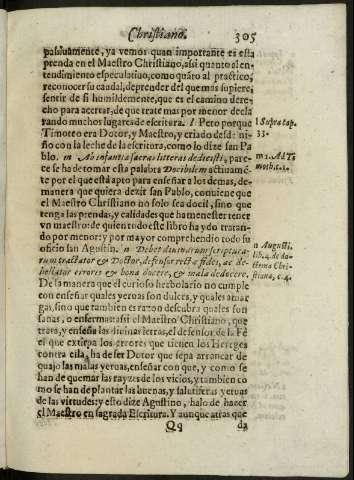 Christiano. 305
passiuamente, ya vemos quan importante es esta
prenda en el Maestro Christiano, assi quanto al en-
tendimiento especulatiuo, como quãto al practico,
reconocer su caudal, deprender del que mas supiere,
sentir de si humildemente, que es el camino dere-
cho para acertar, de que trate mas por menor decla
rando muchos lugares de escritura. l Pero porque
l Supra cap.
33.
Timoteo era Dotor, y Maestro, y criado desde ni-
ño con la leche de la escritura, como lo dize san Pa
blo. m Ab infantia sacras litteras didicisti, pare-
m 2. Ad Ti
moth. c. 3.
ce se ha de tomar esta palabra Docibilem actiuamẽ-
te por el que està apto para enseñar a los demas, de-
manera que quiera dezir san Pablo, conuiene que
el Maestro Christiano no solo sea docil, sino que
tenga las prendas, y calidades que ha menester tener
vn maestro: de quien todo este libro ha ydo tratan-
do por menor: y por mayor comprehendio todo su
oficio san Augustin. n Debet diuinarum scriptura-
n Augusti.
lib. 4. de do-
ctrina Chri-
stiana, c. 4.
rum tractator & Doctor, defensor rectæ fidei, ac de-
bellator erroris & bona docere, & mala dedocere.
De la manera que el curioso herbolario no cumple
con enseñar quales yeruas son dulces, y quales amar
gas, sino que tambien es razon descubra quales son
sanas, o enfermas: assi el Maestro Christiano, que
trata, y enseña las diuinas letras, el defensor de la Fè
el que extirpa los errores que tienen los Hereges
contra ella, ha de ser Dotor que sepa arrancar de
quajo las malas yeruas, enseñar con que, y como se
han de quemar las rayzes de los vicios, y tambien co
mo se han de plantar las buenas, y salutiferas yeruas
de las virtudes: y esto dize Agustino, halo de hazer
el Maestro en sagrada Escritura. Y aunque atras que
Qq da